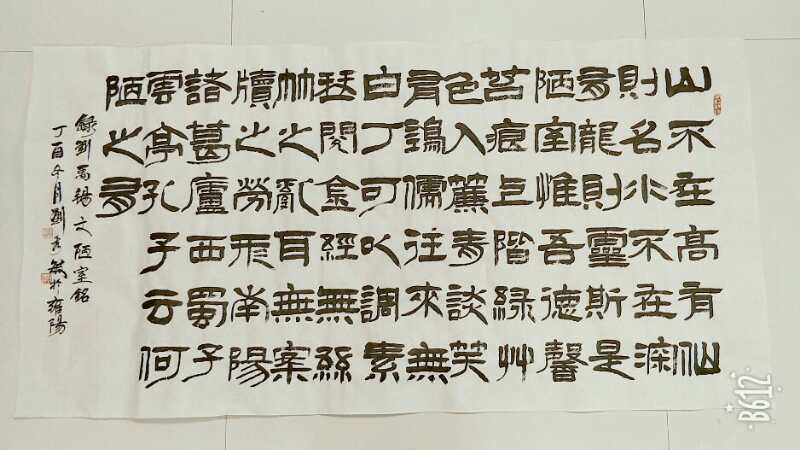 山不在高有仙
則名水不在深
有龍則靈斯是
陋室惟吾德馨
苔痕上階綠艸
色入簾青談笑
有鴻儒往來無
白丁可以調素
琴閱金經無絲
竹之亂耳無案
牘之勞形南陽
諸葛廬西蜀子
雲亭孔子云何
陋之有
錄劉禹錫文陋室銘
丁酉冬月劉於雍陽
B612